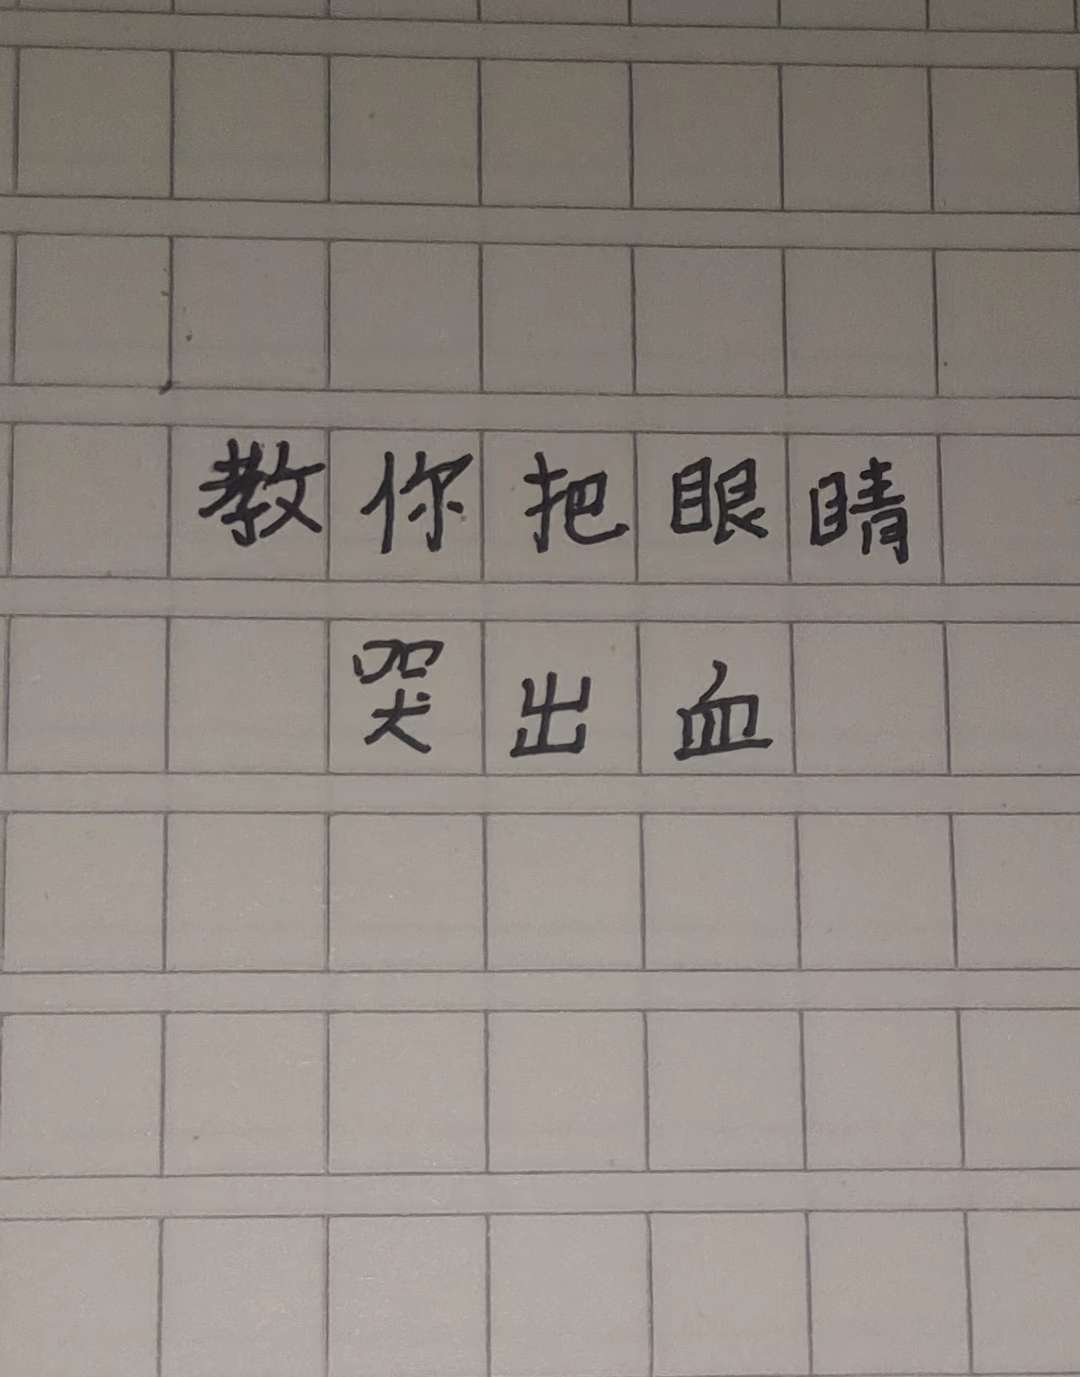 教你把眼睛
哭出血